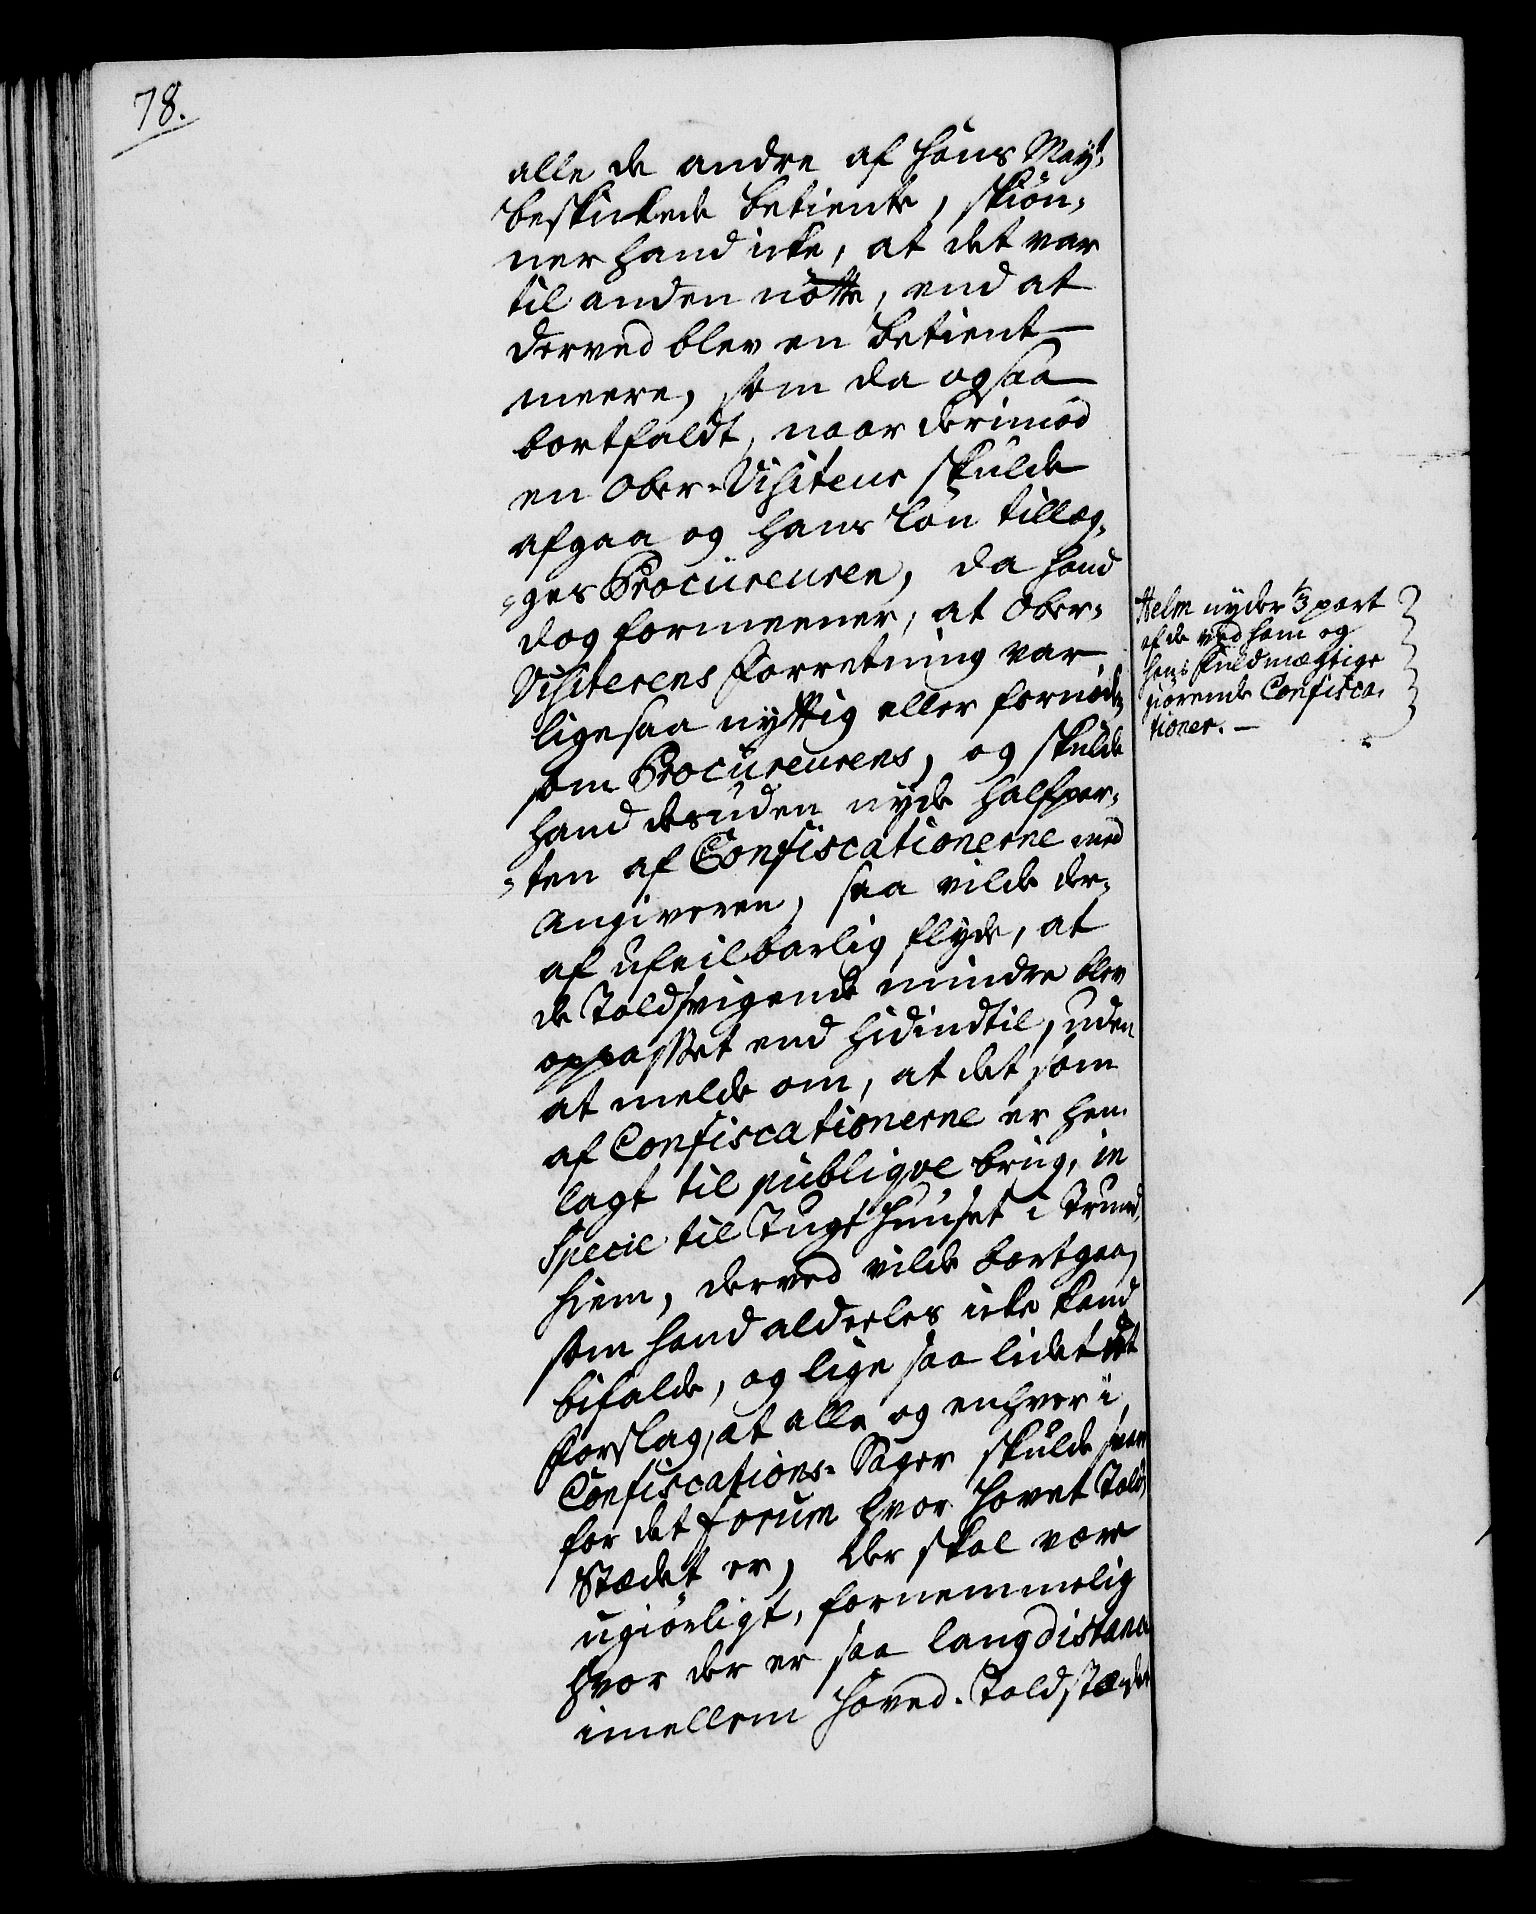 78.
alle de andre af Hans May!
beskickede betiente, skiøn-
ner hand icke, at det var
til anden nötte, end at
derved blev en betient
meere, som da ogsaa
bortfaldt, naar derimod
en Ober-Visiteur skulde
afgaa og hans løn tillæg-
ges Procureuren, da hand
dog formeener, at Ober-
Visiterens forretning var
ligesaa nyttig eller fornøden
som Procureurens, og skulde
hand desuden nyde halfpar-
ten af Confiscationerne med
Angiveren, saa vilde der-
af ufeilbarlig flyde, at
de Toldsvigende mindre blev
oppasset end hidindtil, uden
at melde om, at det som
af Confiscationerne er hen-
lagt til publiqve brug, in
Specie til Tugthuuset i Trund-
hiem, derved vilde bortgaa,
som hand alderles icke kand
bifalde, og lige saa lidet det
Forslag, at alle og enhver i
Confiscations-Sager skulde svare
for det forum hvor Hovet Told-
Stædet er, der skal være
ugiørligt, fornemmelig
hvor der er saa lang distance
imellem Hoved-Toldstæder
Helm nyder 1/3 part
af de ved ham og
hans Fuldmægtige
giørende Confisca-
tioner. -